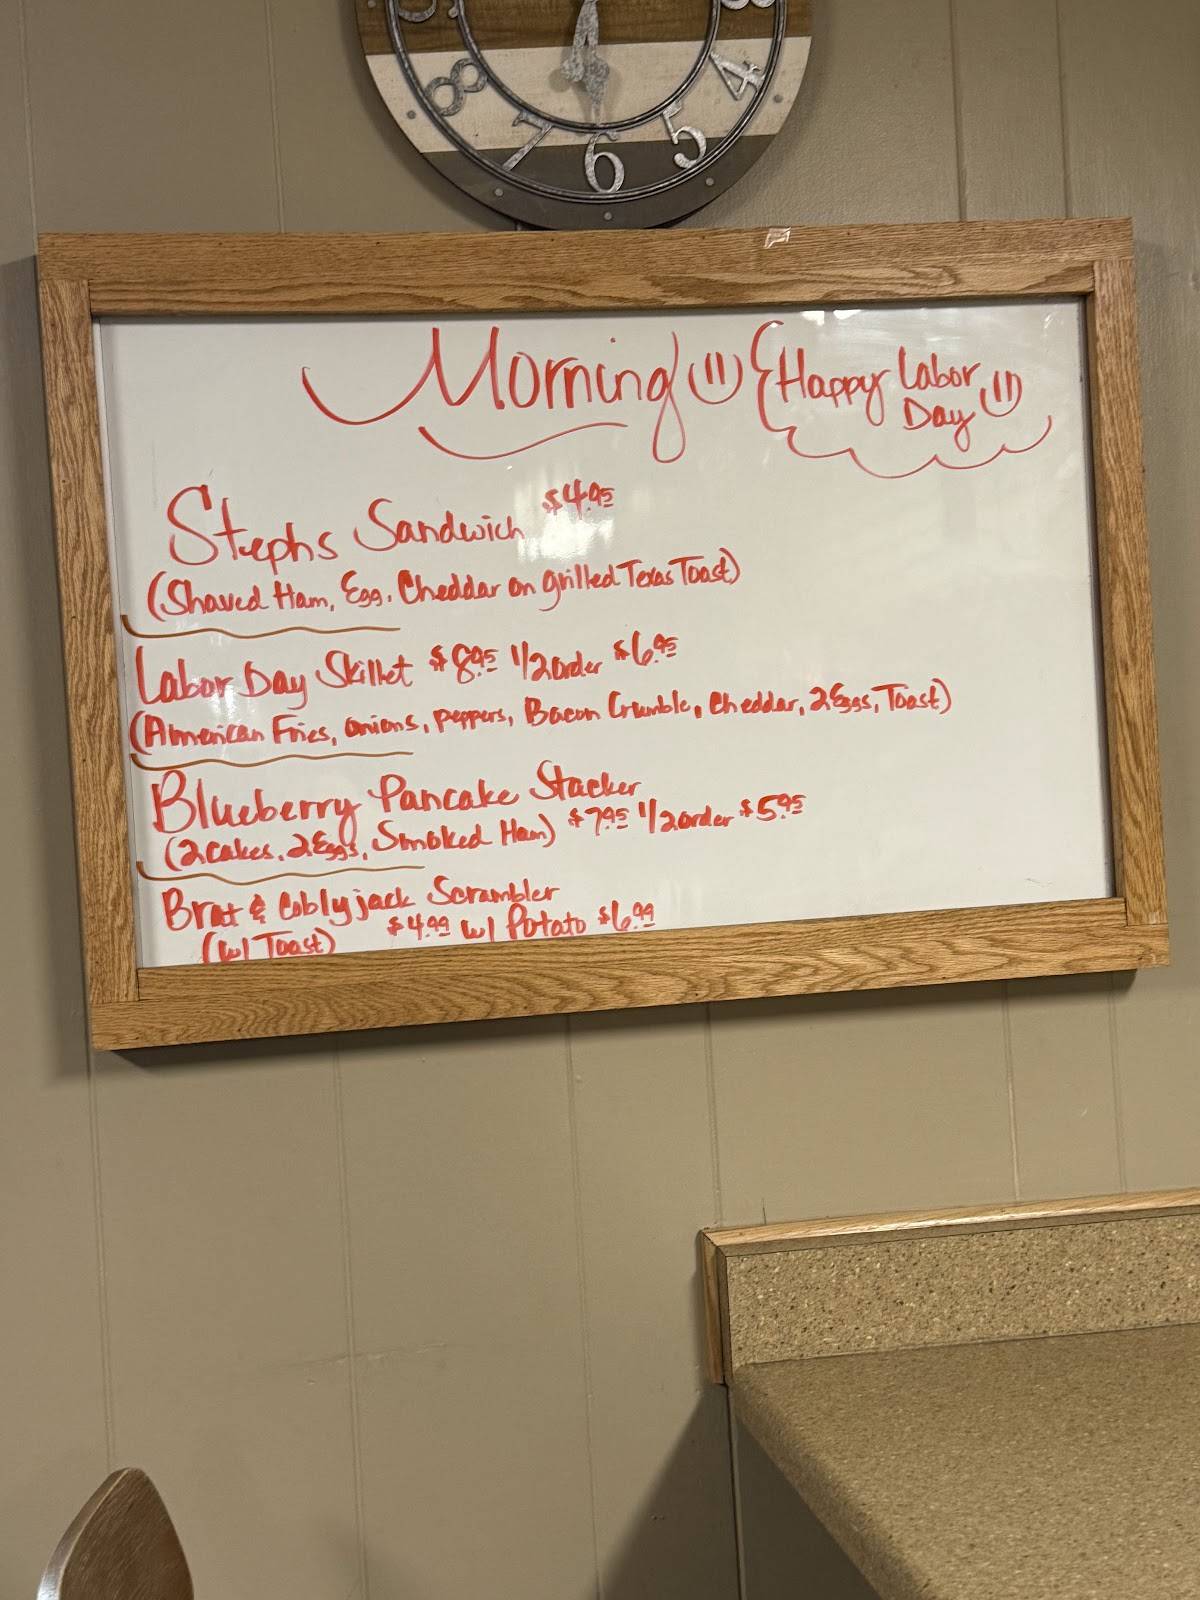 8 7 6 5 4
Morning Happy Labor Day
Stephs Sandwich $4.95
(Shaved Ham, Egg, Cheddar on grilled Texas Toast)
Labor Day Skillet $8.95 1/2 order $6.95
(American Fries, onions, peppers, Bacon Crumble, Cheddar, 2 Eggs, Toast)
Blueberry Pancake Stacker
(2 cakes, 2 Eggs, Smoked Ham) $7.95 1/2 order $5.95
Brat & Coblyjack Scrambler
(w/ Toast) $4.99 w/ Potato $6.99